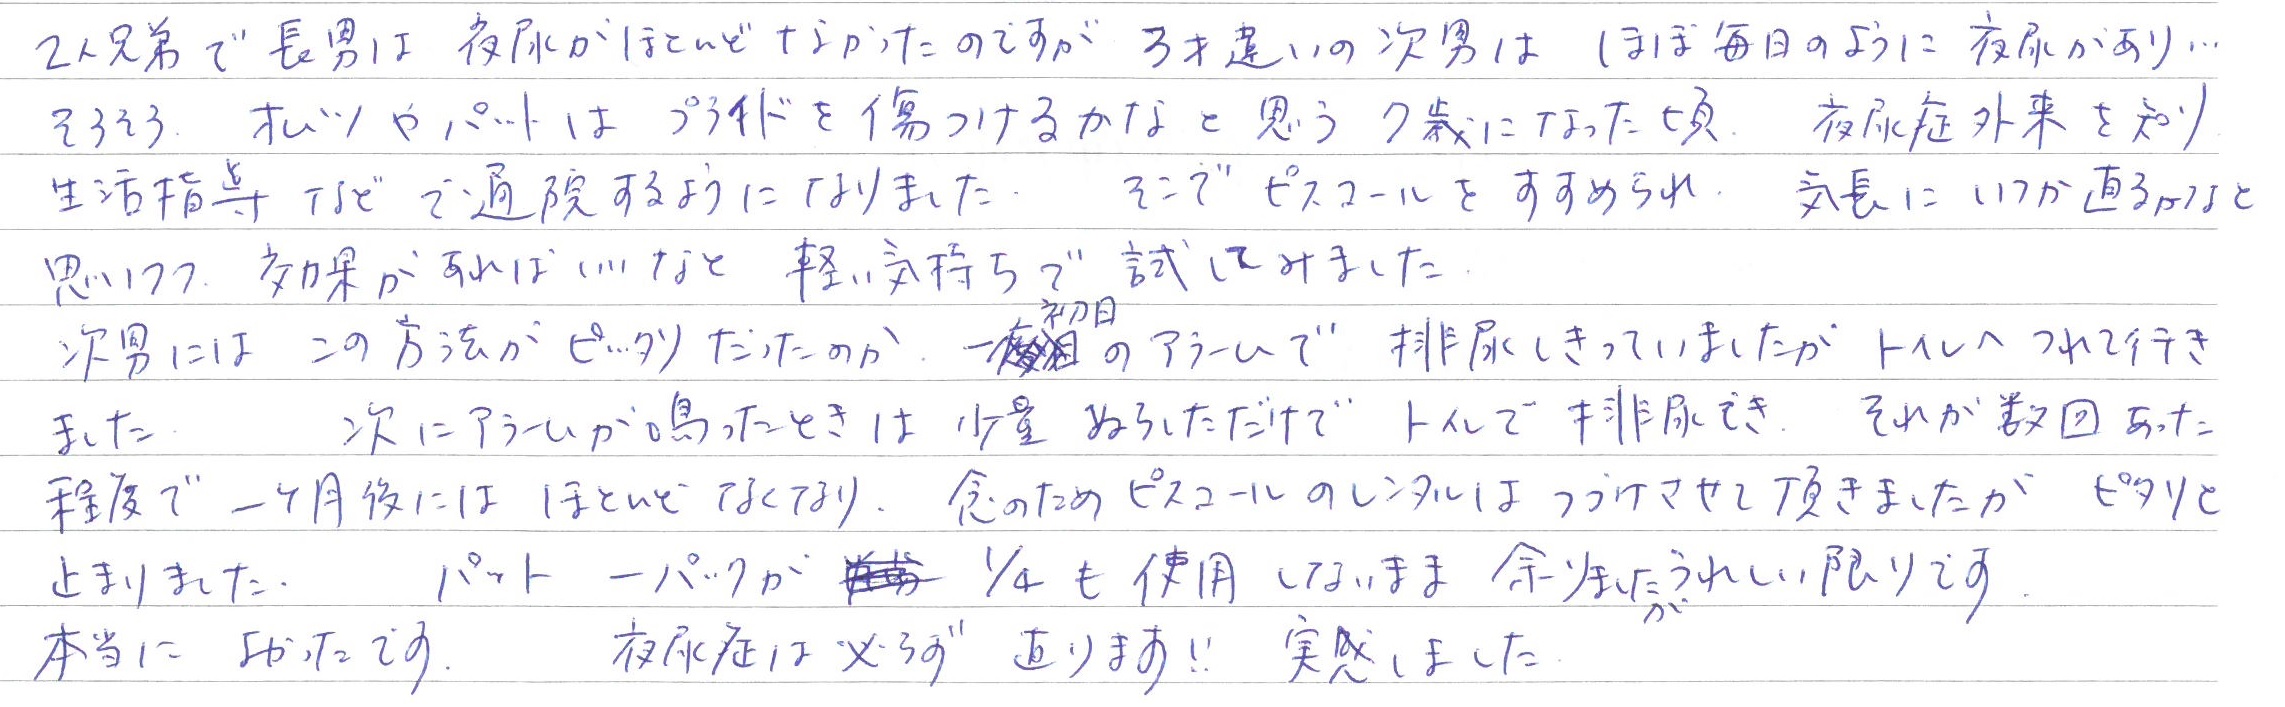 2人兄弟で長男は 夜尿がほとんどなかったのですが 3才違いの次男は ほぼ毎日のように夜尿があり…
そろそろ、オムツやパットは プライドを傷つけるかなと思う 7歳になった頃、 夜尿症外来を知り
生活指導などで通院するようになりました。 そこでピスコールをすすめられ、 気長にいつか直るかなと
思いつつ、効果があればいいなと 軽い気持ちで試してみました。
次男には この方法がピッタリだったのか、初日のアラームで 排尿しきっていましたが トイレへつれて行き
ました。 次にアラームが鳴ったときは 少量ぬらしただけで トイレで排尿でき、 それが数回あった
程度で 一ヶ月後には ほとんどなくなり、 念のためピスコールのレンタルはつづけさせて頂きましたが ピタリと
止まりました。 パット一パックが 1/4も使用しないまま余りましたがうれしい限りです。
本当に よかったです。 夜尿症は必らず 直ります!! 実感しました。